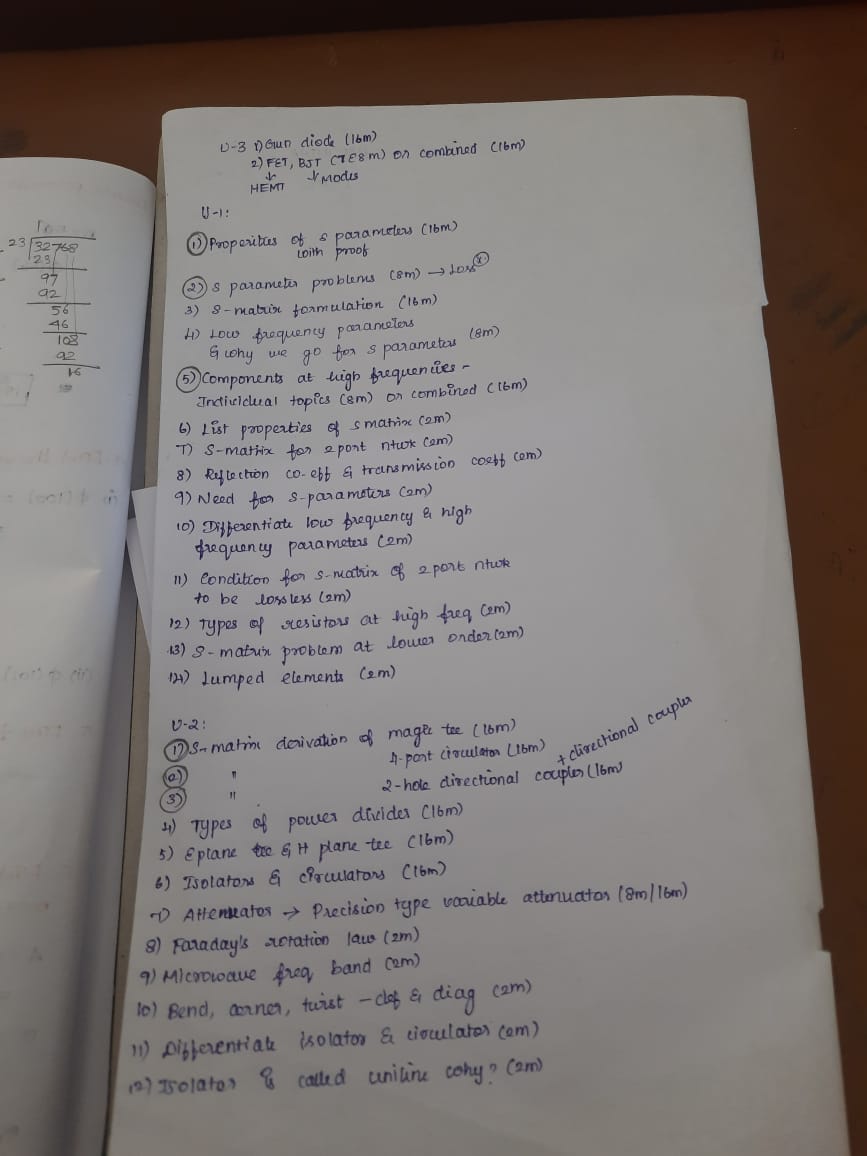 23 32768
23
97
92
56
46
108
92
16
U-3 1) Gun diode (16m)
2) FET, BJT (TE8m) or combined (16m)
↓ ↓ Modes
HEMT
U-1:
1) Properities of s parameters (16m)
with proof
2) S parameter problems (8m) → Loss
3) S-matrix formulation (16m)
4) Low frequency parameters
& why we go for s parameters (8m)
5) Components at high frequencies -
Individual topics (8m) or combined (16m)
6) List properties of s matrix (2m)
7) S-matrix for 2port ntwk (2m)
8) Reflection co-eff & transmission coeff (2m)
9) Need for S-parameters (2m)
10) Differentiate low frequency & high
frequency parameters (2m)
11) Condition for s-matrix of 2port ntwk
to be lossless (2m)
12) Types of resistors at high freq (2m)
13) S-matrix problem at lower order (2m)
14) Lumped elements (2m)
U-2:
1) S-matrix derivation of magic tee (16m)
2) " 4-port circulator (16m) + directional coupler
3) " 2-hole directional coupler (16m)
4) Types of power divider (16m)
5) Eplane tee & H plane tee (16m)
6) Isolators & circulators (16m)
7) Attenuator → Precision type variable attenuator (8m/16m)
8) Faraday's rotation law (2m)
9) Microwave freq band (2m)
10) Bend, corner, twist - def & diag (2m)
11) Differentiate isolator & circulator (2m)
12) Isolator is called uniline why? (2m)